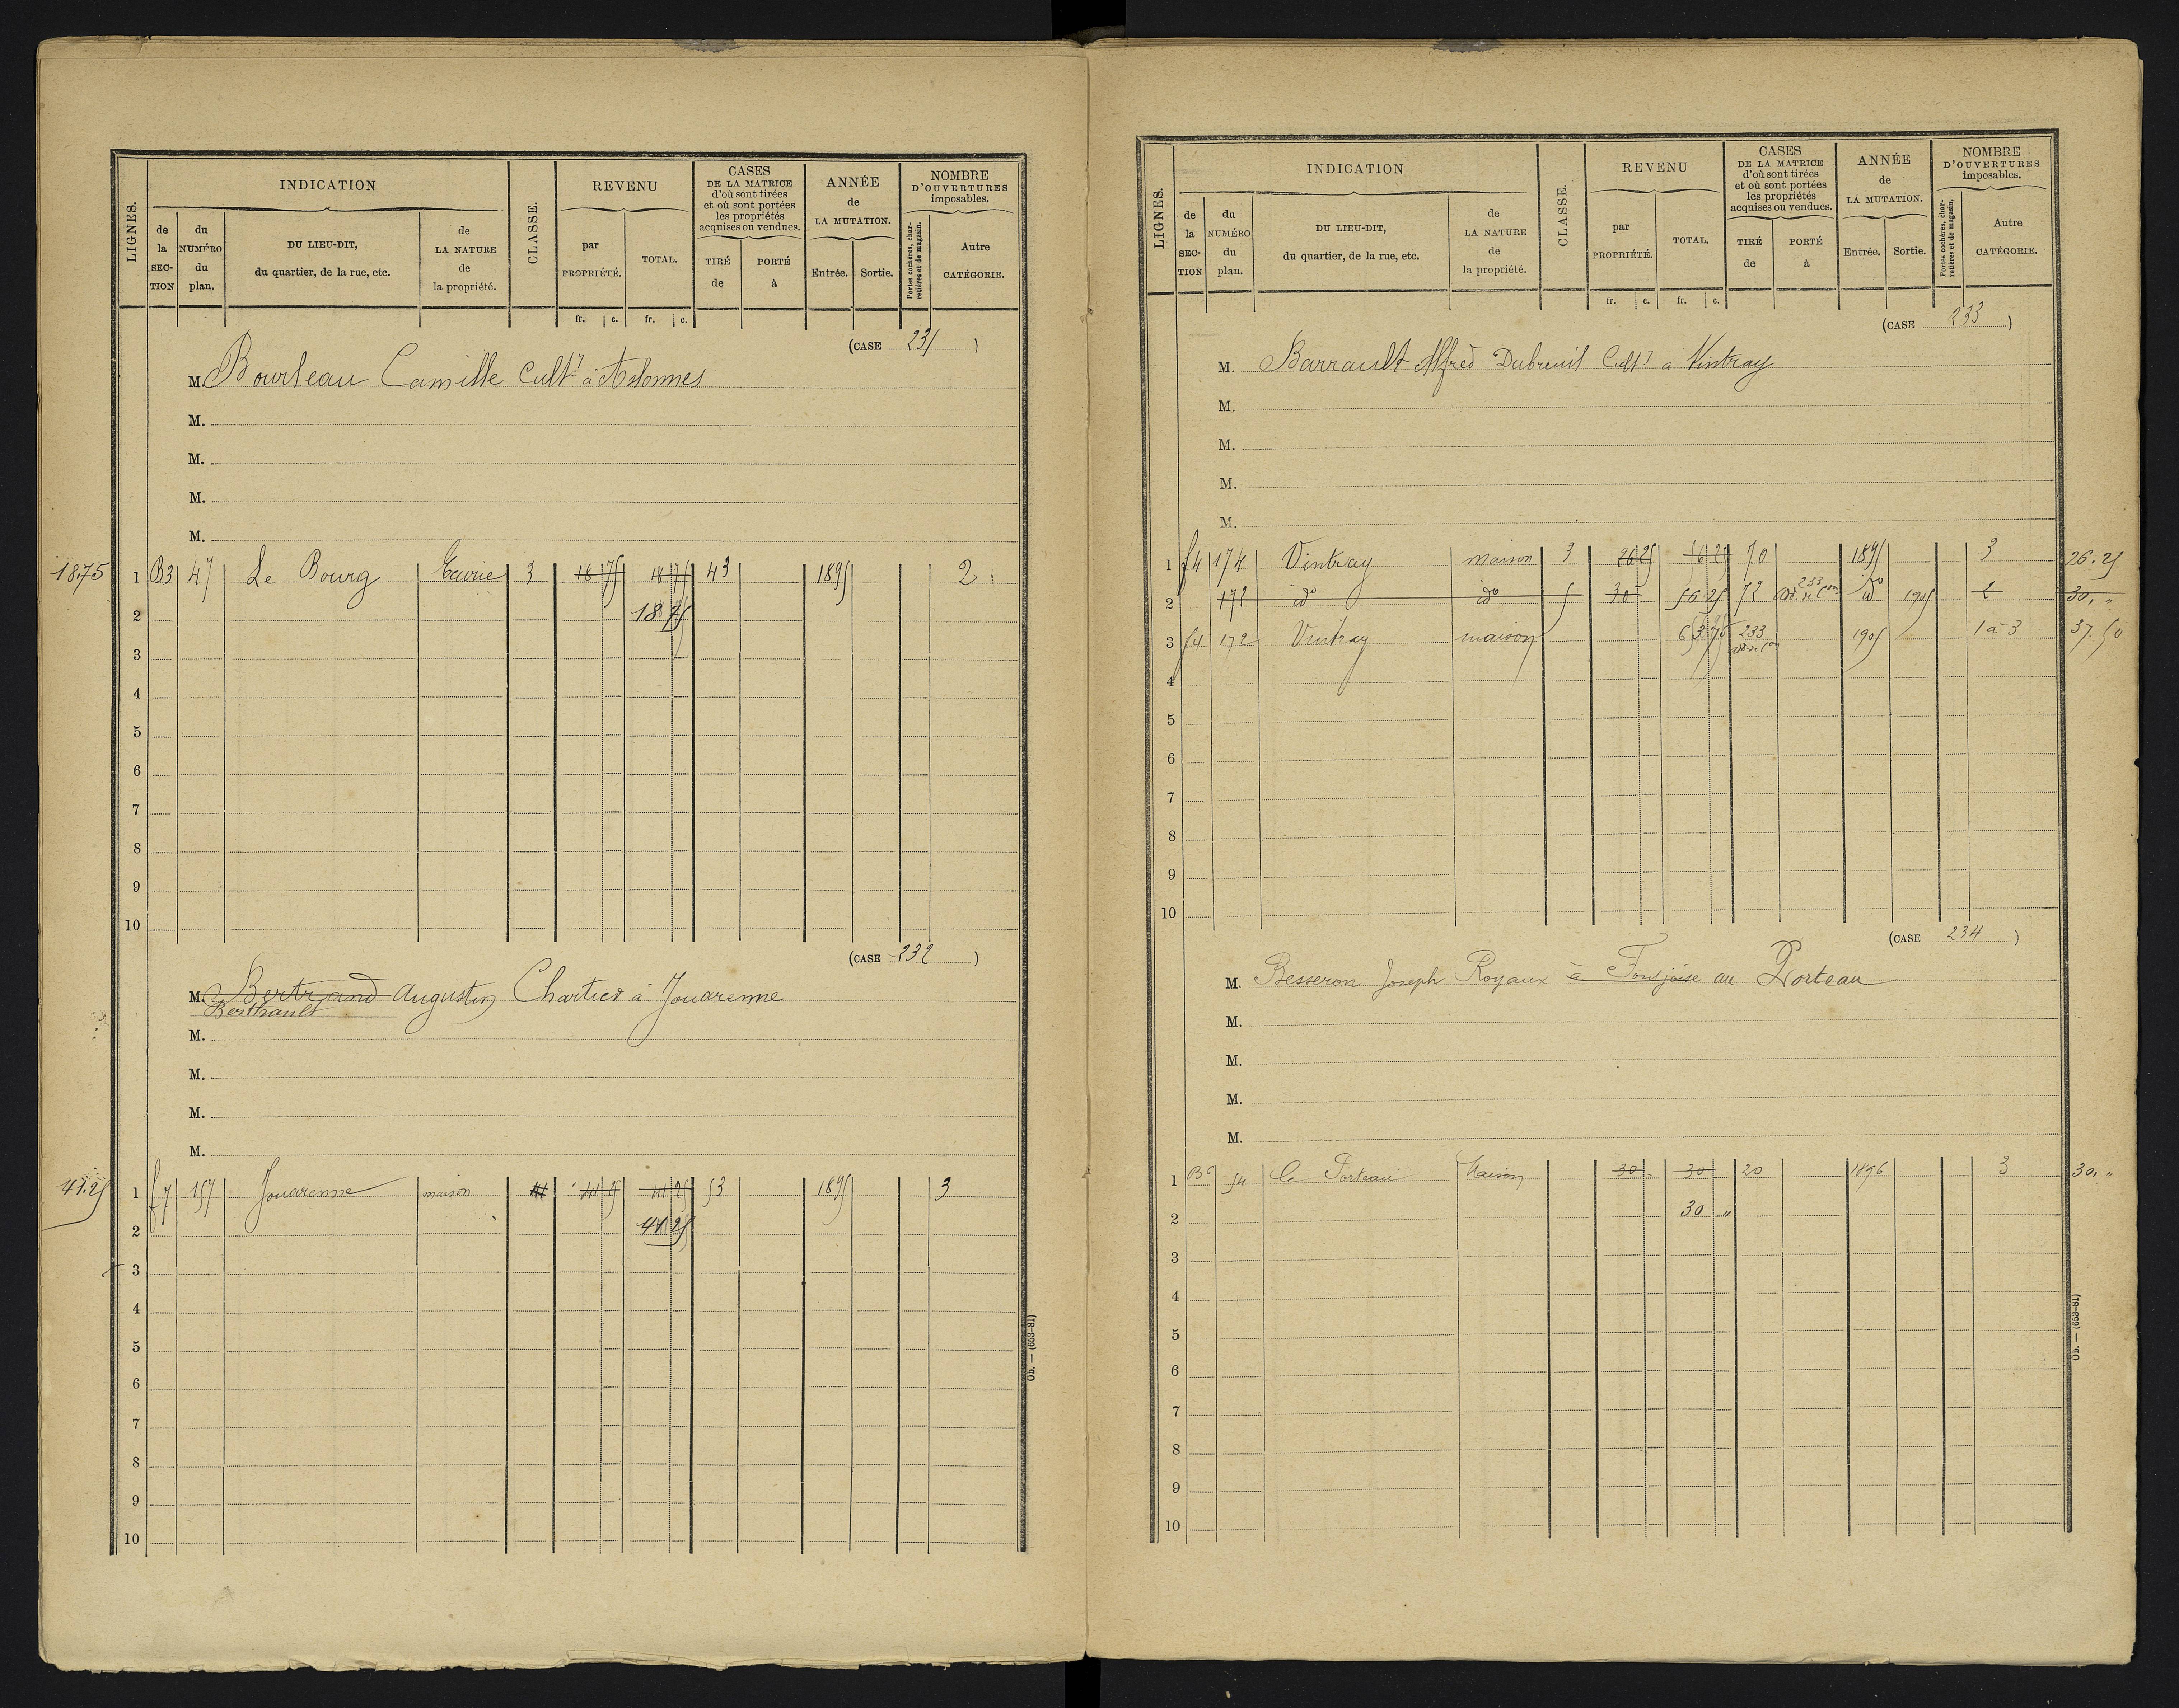 LIGNES.
INDICATION
de la SECTION
du NUMÉRO du plan.
DU LIEU-DIT, du quartier, de la rue, etc.
de LA NATURE de la propriété.
CLASSE.
REVENU
par PROPRIÉTÉ.
TOTAL.
CASES DE LA MATRICE d'où sont tirées et où sont portées les propriétés acquises ou vendues.
TIRÉ de
PORTÉ à
ANNÉE de LA MUTATION.
Entrée.
Sortie.
NOMBRE D'OUVERTURES imposables.
Portes cochères, charretières et de magasin.
Autre CATÉGORIE.
fr. c. fr. c.
(CASE 231)
M. Bourleau Camille Cultr à Aslonnes
M.
M.
M.
M.
18.75 1 B3 47 Le Bourg Ecurie 3 18 75 18 75 43 1895 2
2 18 75
3
4
5
6
7
8
9
10
(CASE 232)
M. Bertrand Augustin Chartier à Jouarenne
Berthault
M.
M.
M.
M.
41.25 1 f7 157 Jouarenne maison 41 25 53 1895 3
2 41 25
3
4
5
6
7
8
9
10
Ob. — (653-81)
LIGNES.
INDICATION
de la SECTION
du NUMÉRO du plan.
DU LIEU-DIT, du quartier, de la rue, etc.
de LA NATURE de la propriété.
CLASSE.
REVENU
par PROPRIÉTÉ.
TOTAL.
CASES DE LA MATRICE d'où sont tirées et où sont portées les propriétés acquises ou vendues.
TIRÉ de
PORTÉ à
ANNÉE de LA MUTATION.
Entrée.
Sortie.
NOMBRE D'OUVERTURES imposables.
Portes cochères, charretières et de magasin.
Autre CATÉGORIE.
fr. c. fr. c.
(CASE 233)
M. Barrault Alfred Dubreuil Cultr à Vintray
M.
M.
M.
M.
1 f4 174 Vintray maison 3 26 25 70 1895 3 26.25
2 172 do do 5 30 56 25 72 233 do 1905 2 30, "
3 f4 172 Vintray maison 63 75 233 1905 1 à 3 37.50
4
5
6
7
8
9
10
(CASE 234)
M. Besseron Joseph Royaux à Fontjoise au Porteau
M.
M.
M.
M.
1 54 Le Porteau Maison 30 30 20 1896 3 30, "
2 30 "
3
4
5
6
7
8
9
10
Ob. — (653-81)